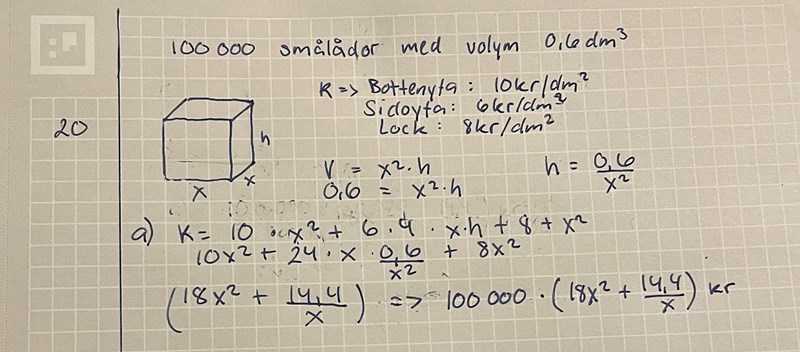 100 000 smålådor med volym 0,6 dm³
K => Bottenyta : 10kr/dm²
Sidoyta : 6kr/dm²
Lock : 8kr/dm²
20
h
x
x
V = x²·h
h = 0,6/x²
0,6 = x²·h
a) K = 10 · x² + 6·4 · x·h + 8 + x²
10x² + 24 · x · 0,6/x² + 8x²
(18x² + 14,4/x) => 100 000 · (18x² + 14,4/x) kr